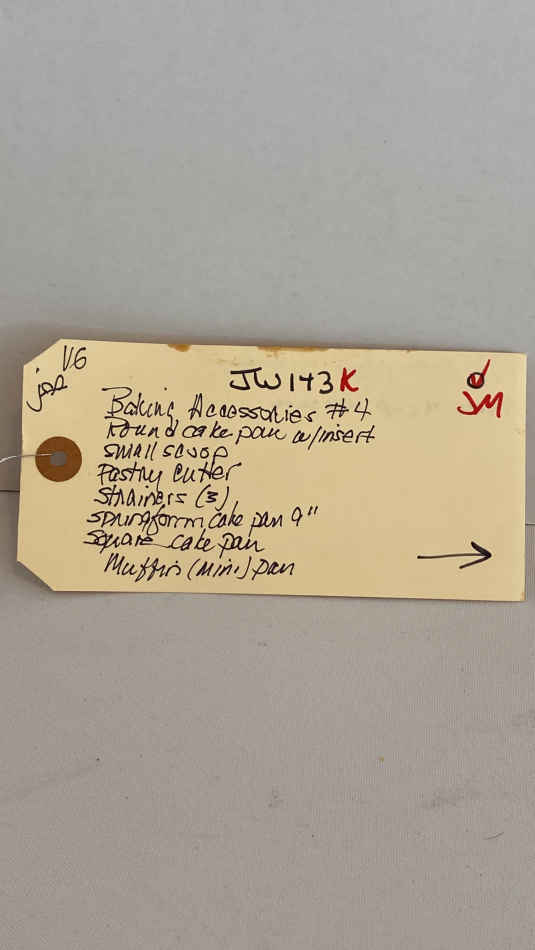 V.G
JW143K
JM
Baking Accessories #4
Round cake pan w/insert
small scoop
Pastry Cutter
Strainers (3)
springform cake pan 9"
Square cake pan
Muffin (mini) pan